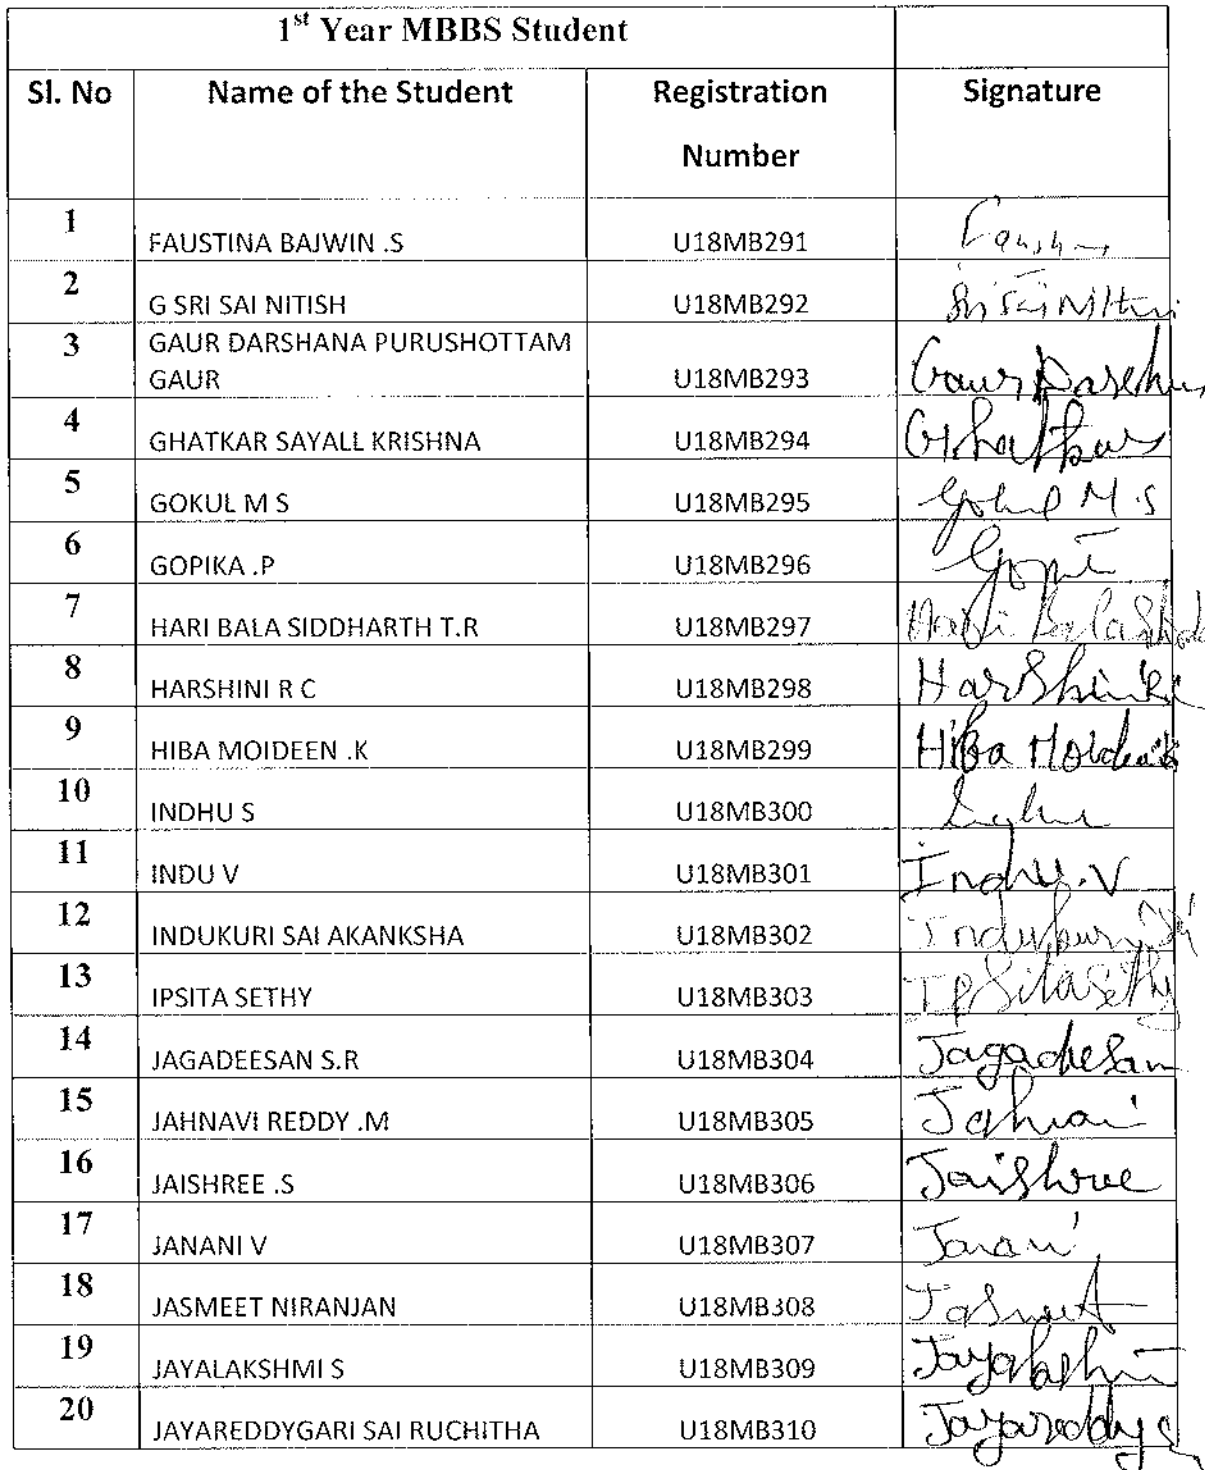 1st Year MBBS Student
Sl. No Name of the Student Registration Number Signature
1 FAUSTINA BAJWIN .S U18MB291
2 G SRI SAI NITISH U18MB292
3 GAUR DARSHANA PURUSHOTTAM GAUR U18MB293 Gaur
4 GHATKAR SAYALL KRISHNA U18MB294 Ghatkar
5 GOKUL M S U18MB295 Gokul M.S
6 GOPIKA .P U18MB296
7 HARI BALA SIDDHARTH T.R U18MB297 Hari Bala
8 HARSHINI R C U18MB298
9 HIBA MOIDEEN .K U18MB299 Hiba
10 INDHU S U18MB300
11 INDU V U18MB301 Indhu.V
12 INDUKURI SAI AKANKSHA U18MB302
13 IPSITA SETHY U18MB303 Ipsita Sethy
14 JAGADEESAN S.R U18MB304
15 JAHNAVI REDDY .M U18MB305
16 JAISHREE .S U18MB306 Jaishree
17 JANANI V U18MB307
18 JASMEET NIRANJAN U18MB308
19 JAYALAKSHMI S U18MB309
20 JAYAREDDYGARI SAI RUCHITHA U18MB310